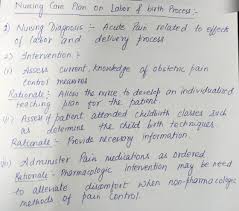 Nursing Care Plan on Labor & birth Process :-
1) Nursing Diagnosis :- Acute Pain related to effects
of labor and delivery process
2) Intervention :-
i) Assess current knowledge of obstetric pain
control measures
Rationale :- Allows the nurse to develop an individualized
teaching plan for the patient.
ii) Assess if patient attended childbirth classes such
as determine the child birth techniques.
Rationale :- Provide necessary information.
iii) Administer Pain medications as ordered
Rationale :- Pharmacologic intervention may be need
to alleviate discomfort when non-pharmacologic
methods of pain control.